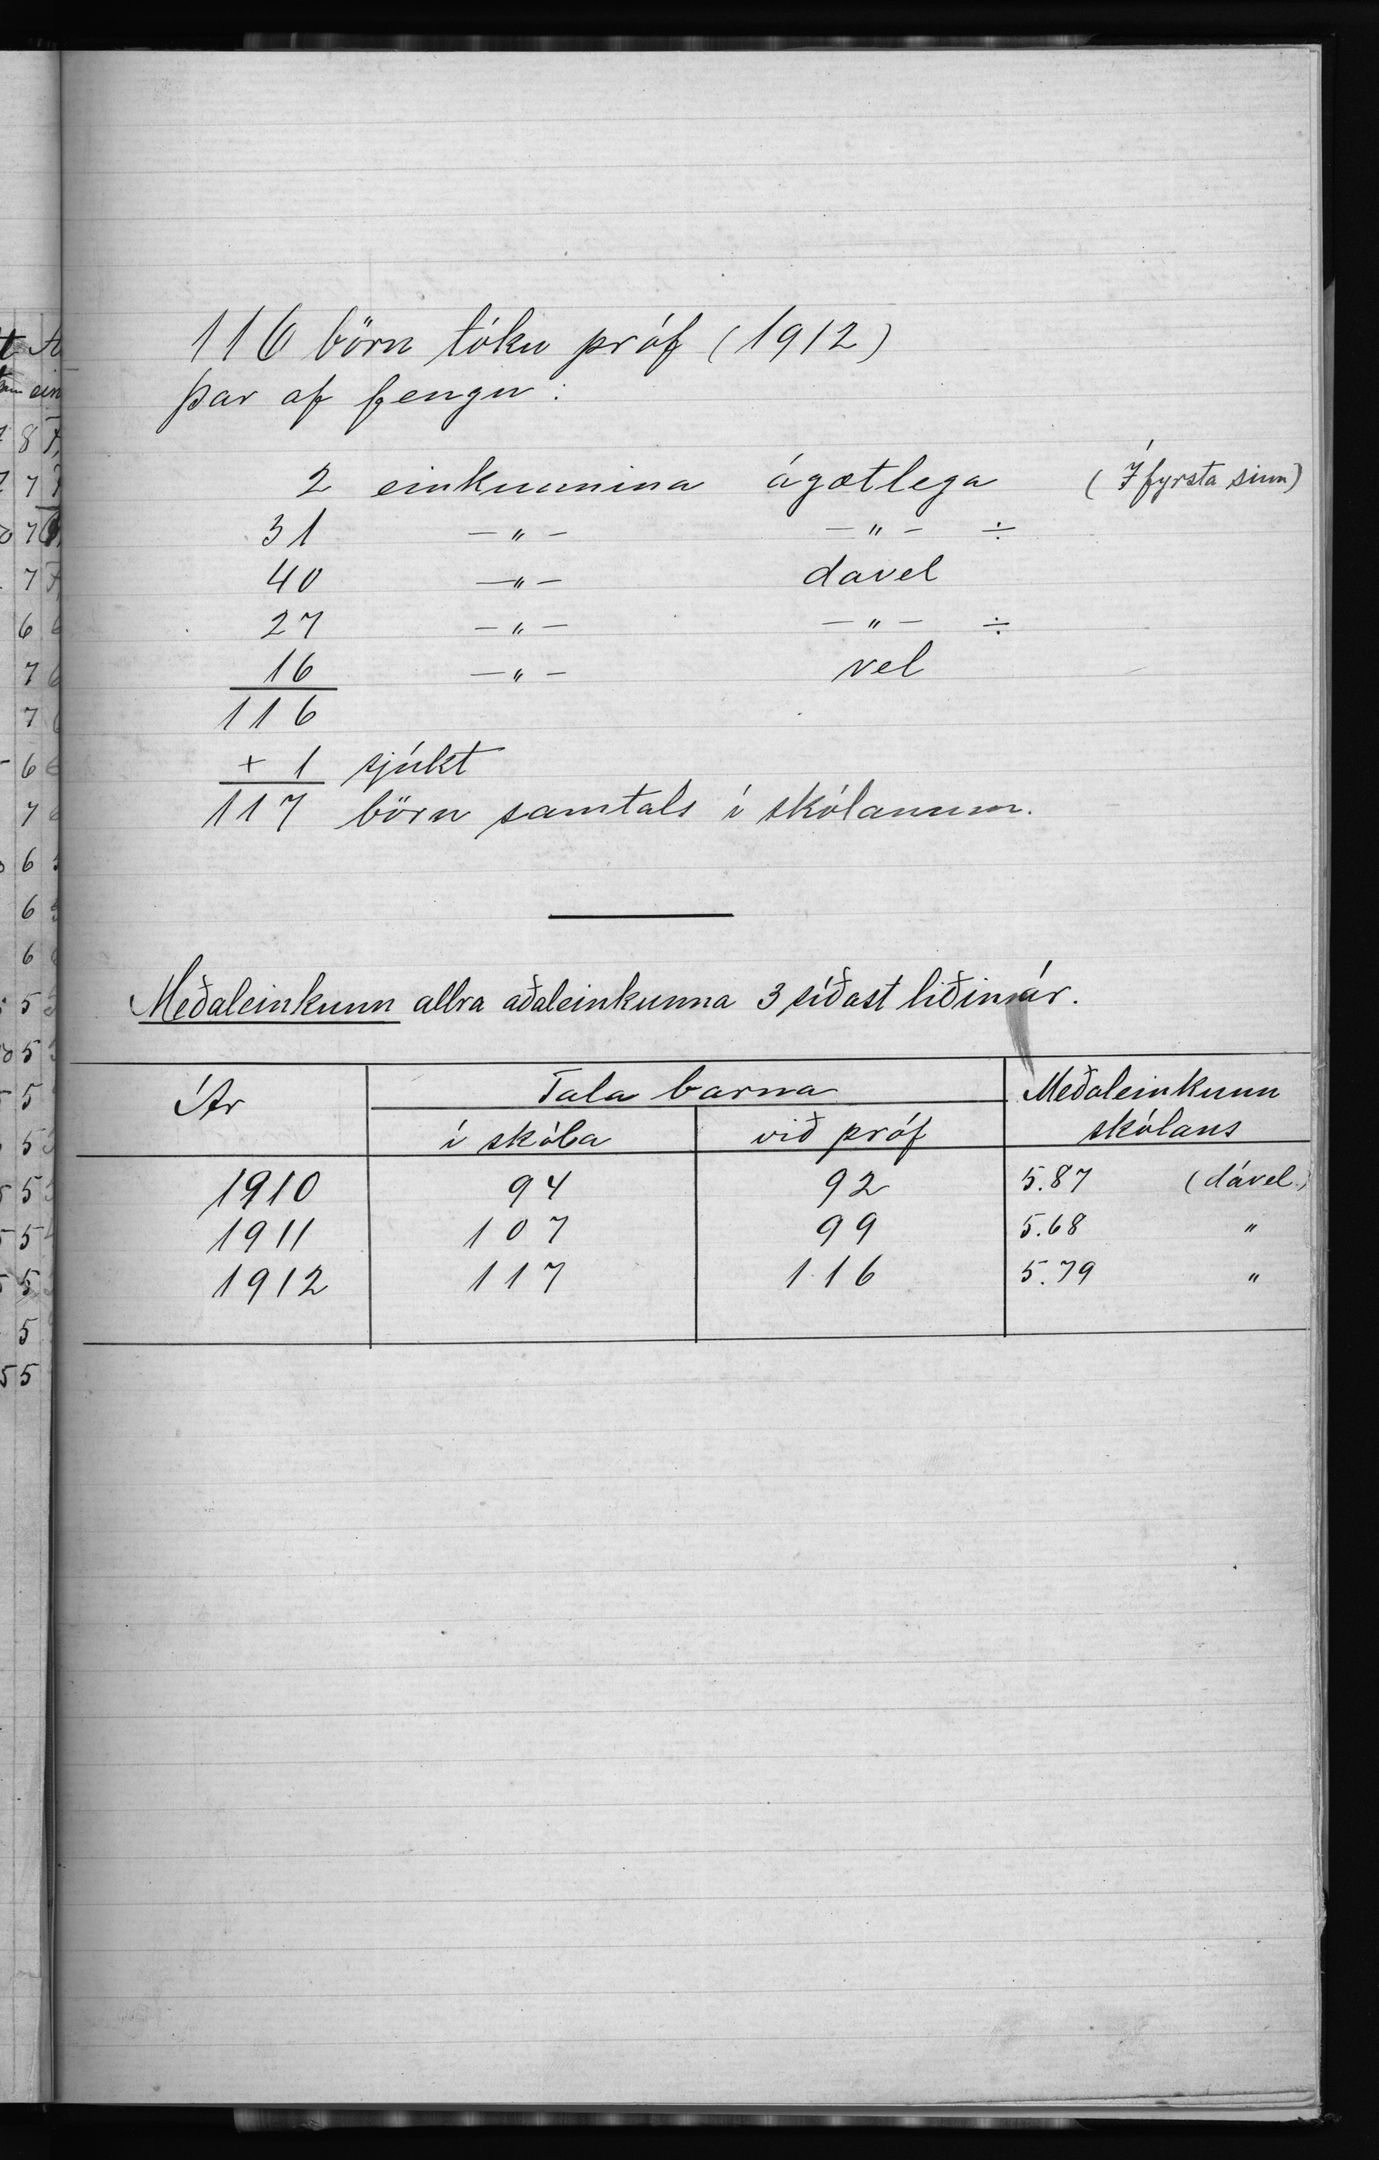 116 börn tóku próf (1912)
þar af fengu:
2 einkunnina ágætlega (Í fyrsta sinn)
31 —„— —„— ÷
40 —„— davel
27 —„— —„— ÷
16 —„— vel
116
+ 1 sjúkt
117 börn samtals í skólanum.
Meðaleinkunn allra aðaleinkunna 3 síðast liðin ár.
Ár Tala barna Meðaleinkunn
í skóla við próf skólans
1910 94 92 5.87 (dável)
1911 107 99 5.68 „
1912 117 116 5.79 „